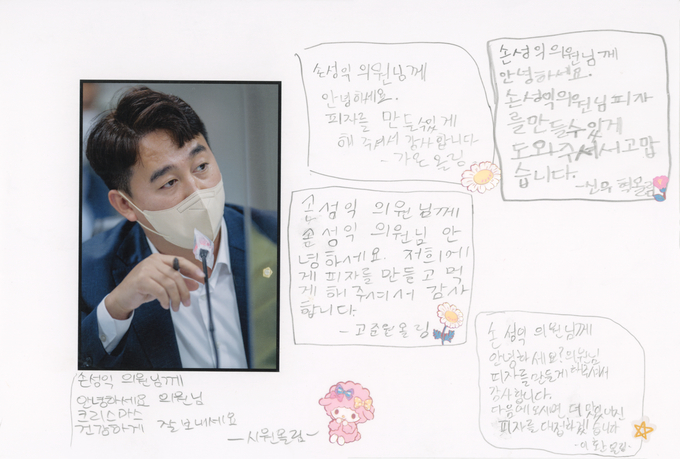 손성익 의원님께
안녕하세요.
피자를 만들수있게
해 주셔서 감사합니다
-가온 올림
손성익 의원님께
안녕하세요.
손성익의원님 피자
를만들수있게
도와주셔서고맙
습니다.
손성익 의원님께
손성익 의원님 안
녕하세요. 저희에
게 피자를 만들고 먹
게 해 주셔서 감사
합니다.
-고준원올림
손성익 의원님께
안녕하세요? 의원님
피자를만들게 해주셔서
감사합니다.
다음에 오시면, 더
피자를 대접하겠습니다
손성익 의원님께
안녕하세요 의원님
크리스마스
건강하게 잘보내세요
-시원올림-